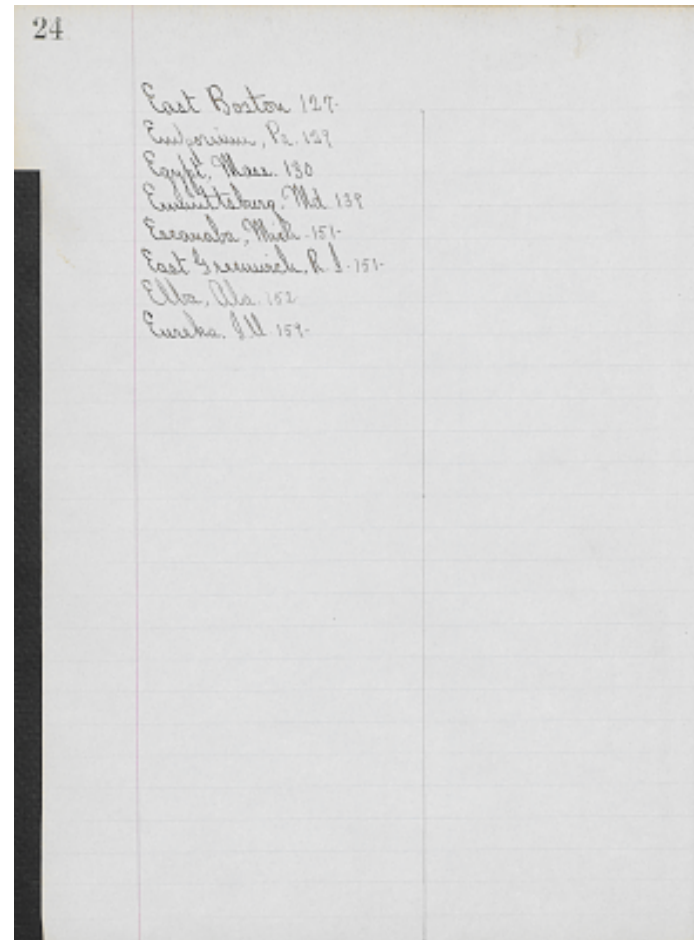 24
East Boston 127-
Emporium, Pa. 129
Egypt, Mass. 130
Emmittsburg, Md. 139
Escanaba, Mich. 151-
East Greenwich, R.I. 151-
Elba, Ala. 152
Eureka, Ill. 159-